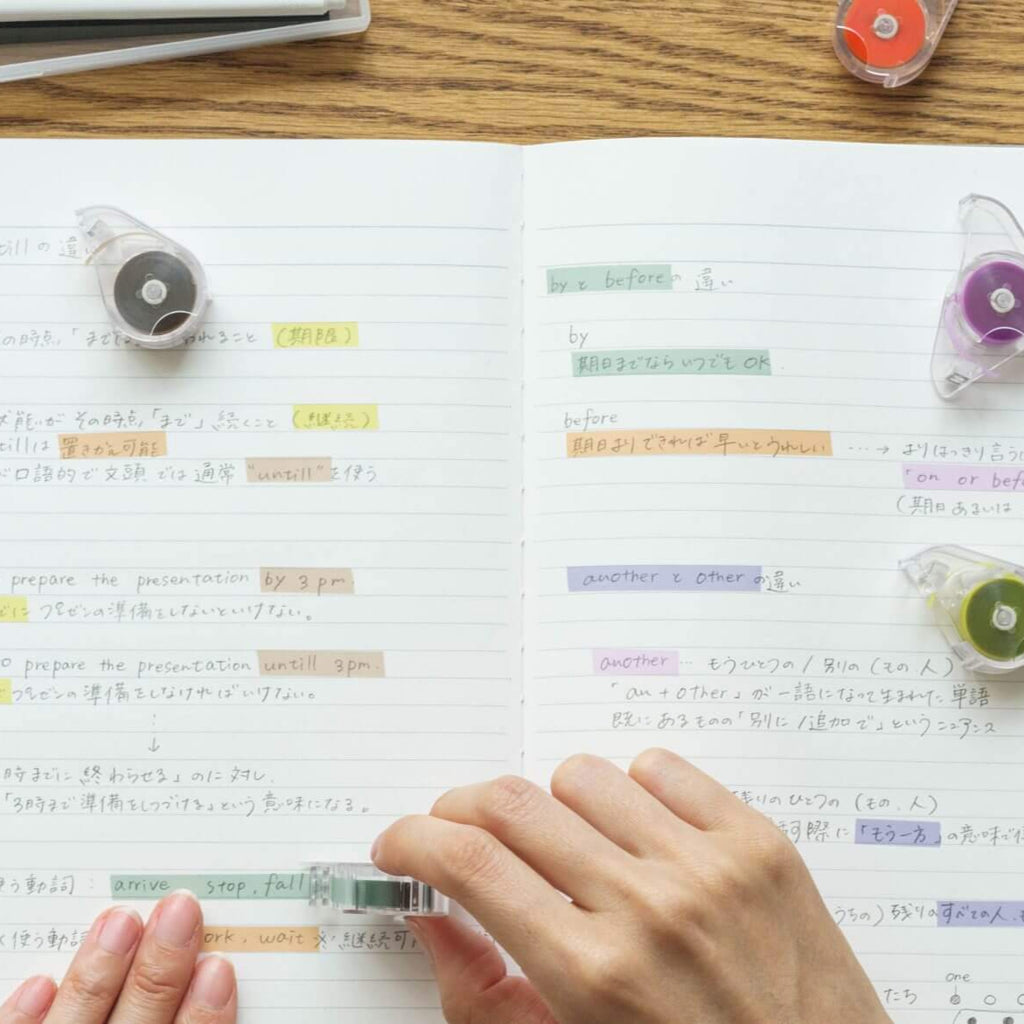 tillの違い
の時点「まで
われること (期限)
がその時点「まで」続くこと (継続)
tillは 置きかえ可能
口語的で文頭では通常 "untill"を使う
prepare the presentation by 3 pm.
でに プレゼンの準備をしないといけない。
o prepare the presentation untill 3pm.
プレゼンの準備をしなければいけない。
↓
時までに 終わらせる」のに対し、
「3時まで準備をしつづける」という意味になる。
う動詞: arrive stop, fall
く使う動詞
ork, wait ※継続可
by と before の違い
by
期日までならいつでも OK.
before
期日よりできれば早いとうれしい …→ よりはっきり言う
「on or bef
(期日あるいは
another と other の違い
another … もうひとつの / 別の (もの, 人)
「an + other」が一語になって生まれた単語
既にあるものの「別に / 追加で」というニュアンス
残りのひとつの (もの、人)
際に「もう一方」の意味で
うちの) 残りのすべての人、
たち
one